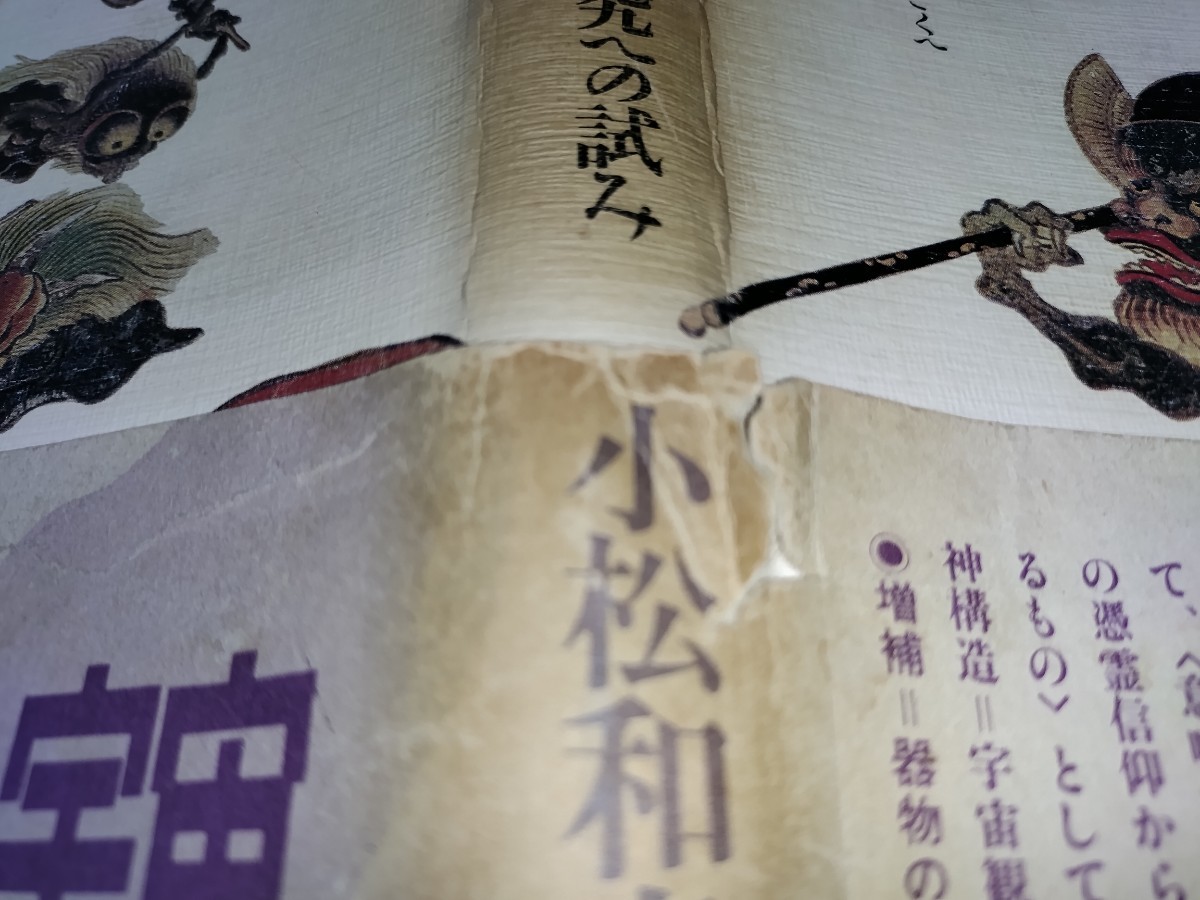 究への試み
小松和
て、
の憑霊信仰から
るもの〉として
神構造＝宇宙観
◉増補＝器物の